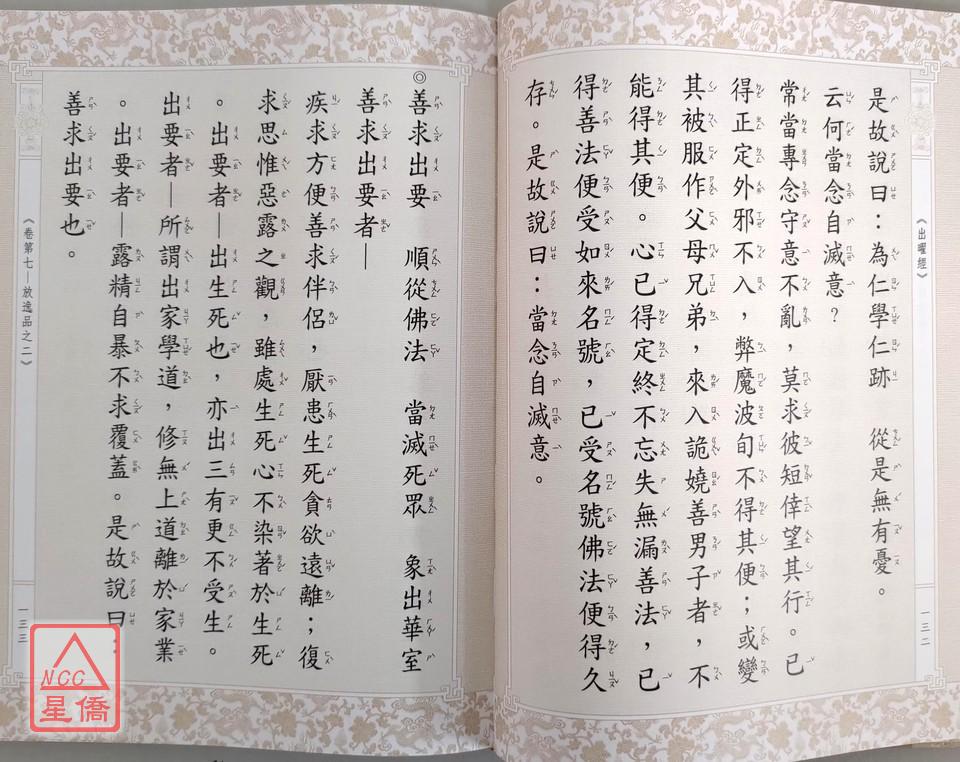 是故說曰：為仁學仁跡　從是無有憂。
云何當念自滅意？
常當專念守意不亂，莫求彼短倖望其行。已
得正定外邪不入，弊魔波旬不得其便；或變
其被服作父母兄弟，來入詭嬈善男子者，不
能得其便。心已得定終不忘失無漏善法，已
得善法便受如來名號，已受名號佛法便得久
存。是故說曰：當念自滅意。
《出曜經》
一三二
◎
善求出要　順從佛法　當滅死眾　象出華室
善求出要者—
疾求方便善求伴侶，厭患生死貪欲遠離；復
求思惟惡露之觀，雖處生死心不染著於生死
。出要者—出生死也，亦出三有更不受生。
出要者—所謂出家學道，修無上道離於家業
。出要者—露精自暴不求覆蓋。是故說曰：
善求出要也。
《卷第七—放逸品之二》
一三三
NCC
星僑